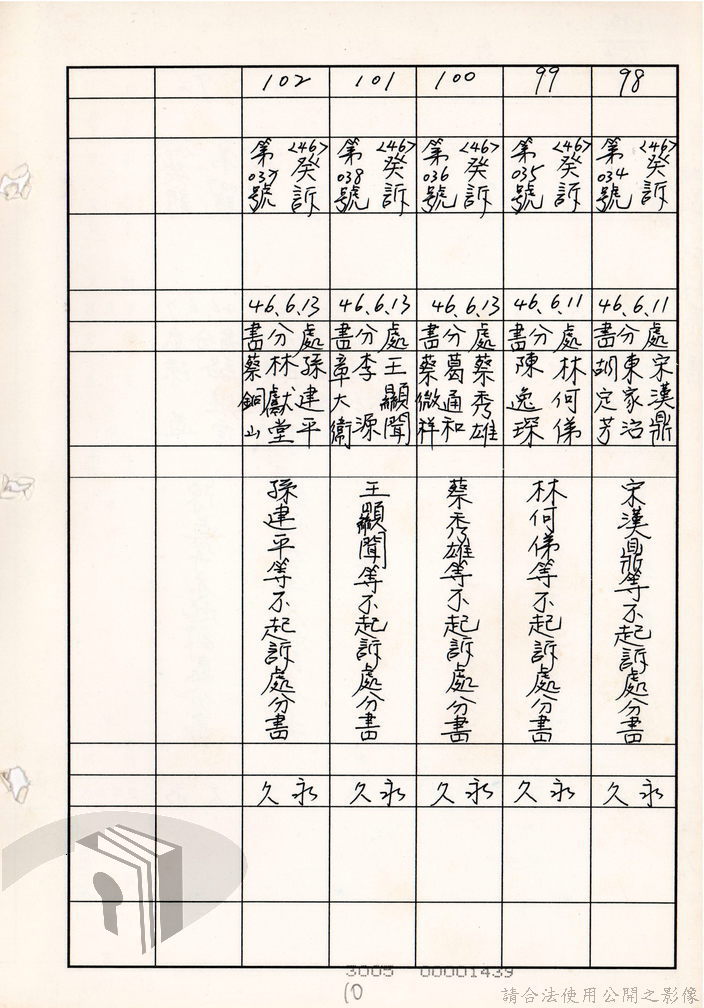 98
<46>癸訴
第034號
46.6.11
處分書
宋漢鼎
東家治
胡定芳
宋漢鼎等不起訴處分書
永久
99
<46>癸訴
第035號
46.6.11
處分書
林何俤
陳逸琛
林何俤等不起訴處分書
永久
100
<46>癸訴
第036號
46.6.13
處分書
蔡秀雄
葛通和
蔡微祥
蔡秀雄等不起訴處分書
永久
101
<46>癸訴
第038號
46.6.13
處分書
王顯聞
李源
章大衛
王顯聞等不起訴處分書
永久
102
<46>癸訴
第037號
46.6.13
處分書
孫建平
林獻堂
蔡銅山
孫建平等不起訴處分書
永久
3005 00001439
10
請合法使用公開之影像